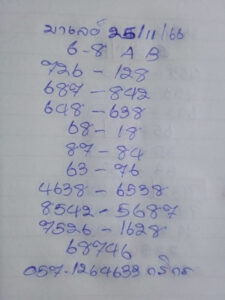 มาเลย์ 25/11/66
6-8 A B
726 - 128
687 - 842
648 - 638
68 - 18
87 - 84
63 - 76
4638 - 6538
8542 - 5687
7526 - 1628
68746
057.1264633